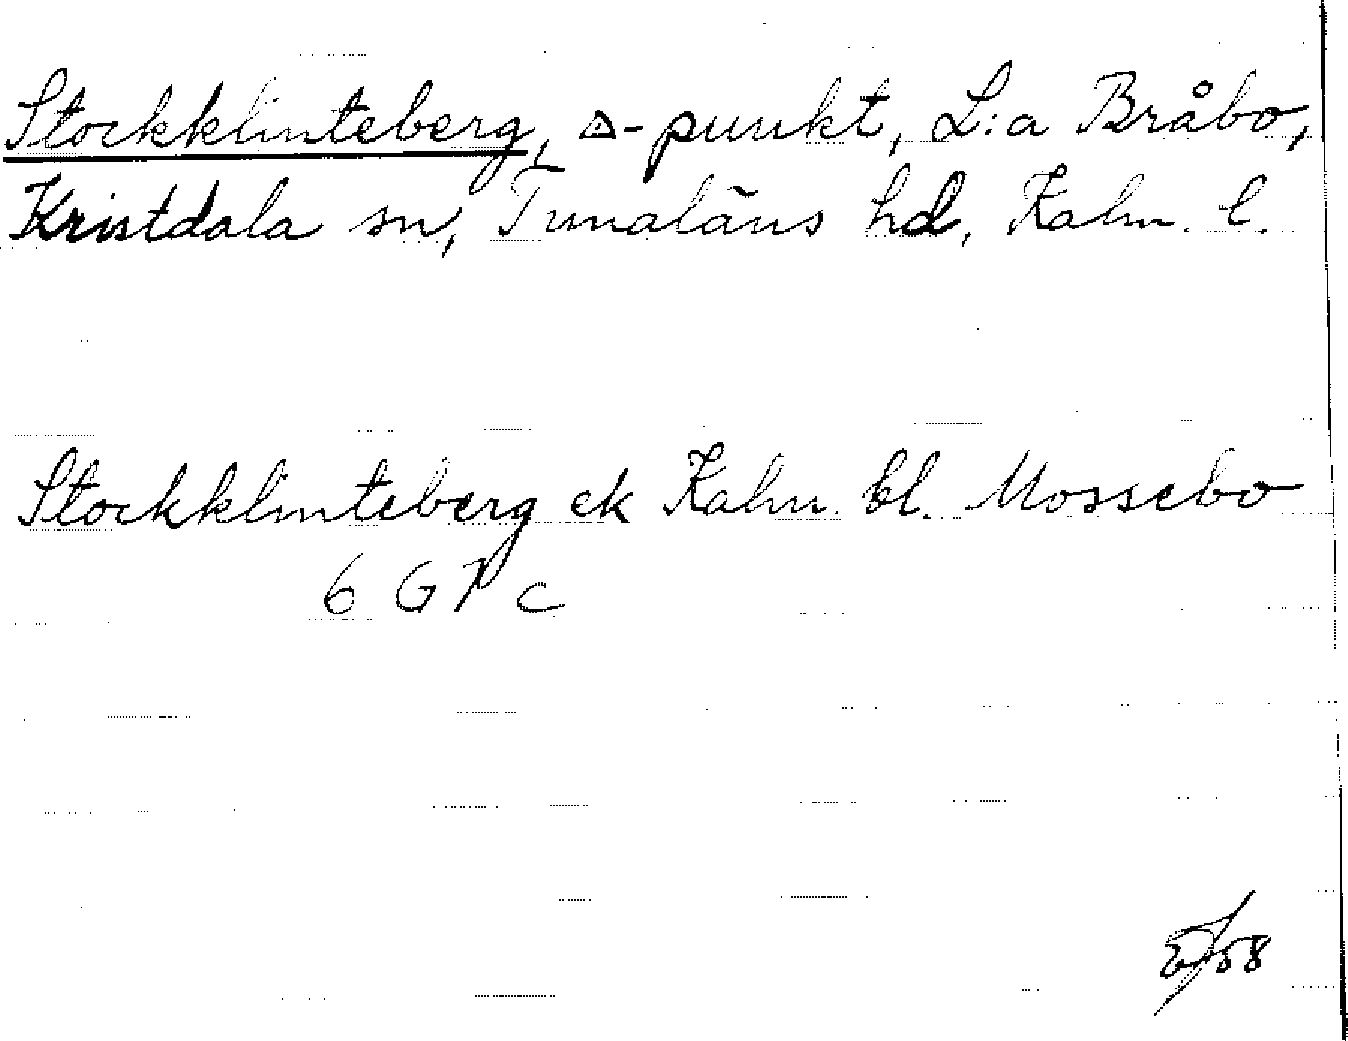 Stockklinteberg, △-punkt, L:a Bråbo,
Kristdala sn, Tunaläns hd, Kalm. l.
Stockklinteberg ek Kalm. bl. Mossebo
6 G 7 c